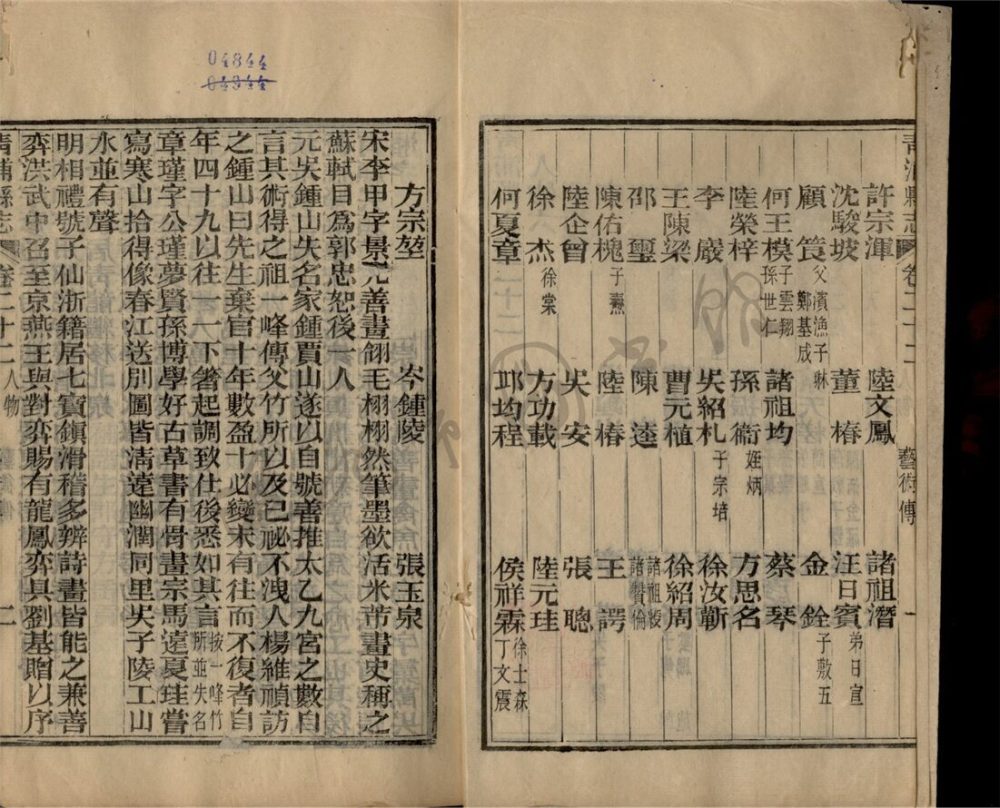 青浦縣志 卷二十二 藝術傳 一
許宗渾 陸文鳳 諸祖潛
沈駿坡 董椿 汪日賓 弟日宣
顧篔 父濱漁子 鄭基成 金銓 子敷五
何王模 子雲翔 孫世仁 諸祖均 蔡琴
陸榮梓 孫衞 姪炳 方思名
李嚴 吳紹札 子宗培 徐汝蘄
王陳梁 曹元植 徐紹周
邵璽 陳逵 諸祖綬 諸贊倫
陳佑槐 子燾 陸椿 王諤
陸企曾 吳安 張聰
徐杰 徐棠 方功載 陸元珪
何夏章 邛均程 侯祥霖 徐士森 丁文震
04844
04944
方宗堃 岑鍾陵 張玉泉
宋李甲字景元善畫翎毛栩栩然筆墨欲活米芾畫史稱之
蘇軾目爲郭忠恕後一人
元吳鍾山失名家鍾賈山遂以自號善推太乙九宮之數自
言其術得之祖一峰傳父竹所以及已祕不洩人楊維禎訪
之鍾山曰先生棄官十年數盈十必變末有往而不復者自
年四十九以往一一下箸起調致仕後悉如其言按一峰竹所並失名
章瑾字公瑾夢賢孫博學好古草書有骨畫宗馬遠夏珪嘗
寫寒山拾得像春江送別圖皆清遠幽潤同里吳子陵工山
水並有聲
明相禮號子仙浙籍居七寶鎮滑稽多辨詩畫皆能之兼善
弈洪武中召至京燕王與對弈賜有龍鳳弈具劉基贈以序
青浦縣志 卷二十二 人物 藝術傳 二